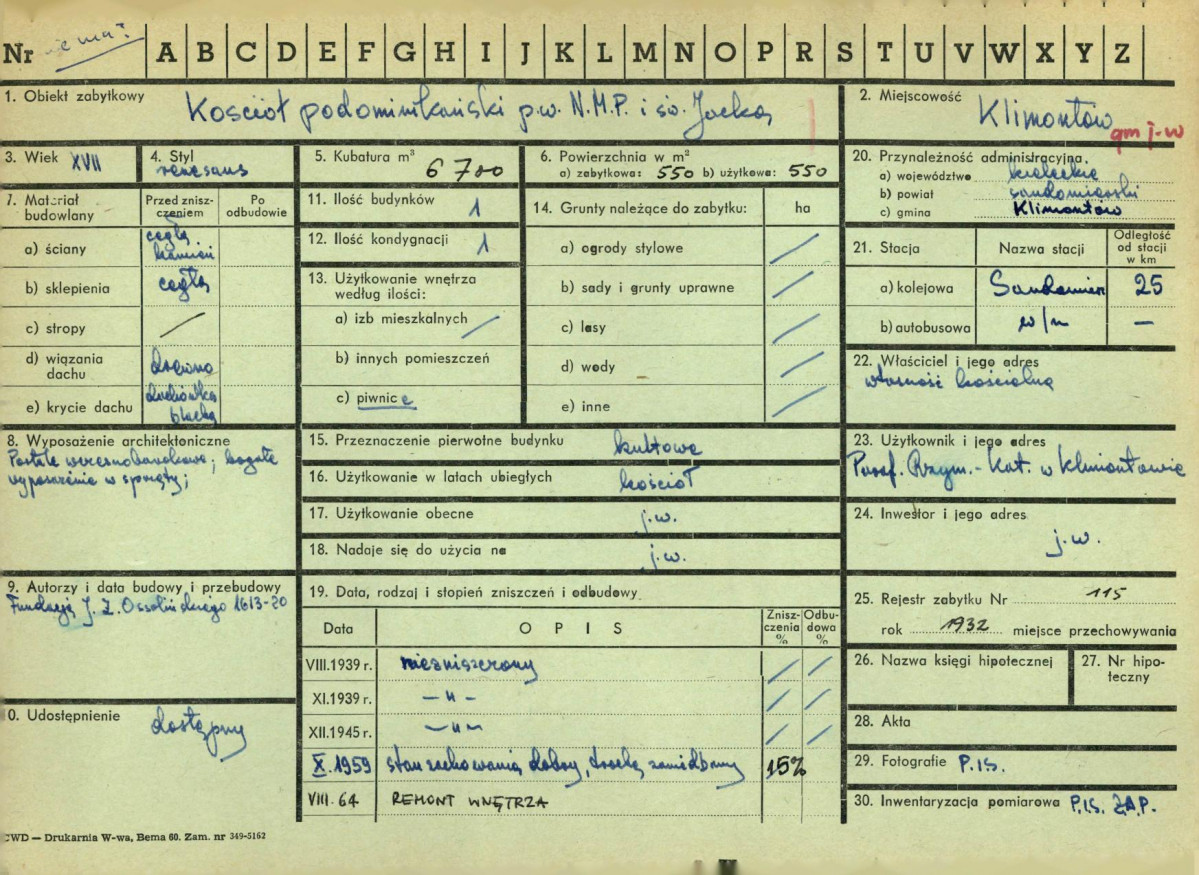 Nr A B C D E F G H I J K L M N O P R S T U V W X Y Z
1. Obiekt zabytkowy Kościół podominikański p.w. N.M.P. i św. Jacka
2. Miejscowość Klimontów
gm j.w
3. Wiek XVII
4. Styl renesans
5. Kubatura m³ 6 700
6. Powierzchnia w m²
a) zabytkowa: 550 b) użytkowa: 550
20. Przynależność administracyjna.
a) województwo kieleckie
b) powiat sandomierski
c) gmina Klimontów
7. Materiał budowlany
Przed znisz-
czeniem
Po
odbudowie
a) ściany cegła kamień
b) sklepienia cegła
c) stropy /
d) wiązania dachu drewno
e) krycie dachu dachówka blacha
11. Ilość budynków 1
12. Ilość kondygnacji 1
13. Użytkowanie wnętrza
według ilości:
a) izb mieszkalnych /
b) innych pomieszczeń
c) piwnice
14. Grunty należące do zabytku: ha
a) ogrody stylowe /
b) sady i grunty uprawne /
c) lasy /
d) wody /
e) inne /
21. Stacja Nazwa stacji
Odległość
od stacji
w km
a) kolejowa Sandomierz 25
b) autobusowa w/m —
22. Właściciel i jego adres
własność kościelna
8. Wyposażenie architektoniczne
Portale wczesnobarokowe; bogate
wyposażenie w sprzęty;
15. Przeznaczenie pierwotne budynku kultowe
16. Użytkowanie w latach ubiegłych kościół
17. Użytkowanie obecne j.w.
18. Nadaje się do użycia na j.w.
23. Użytkownik i jego adres
Paraf. Rzym.-Kat. w Klimontowie
24. Inwestor i jego adres
j.w.
9. Autorzy i data budowy i przebudowy
Fundacja J. Z. Ossolińskiego 1613-20
19. Data, rodzaj i stopień zniszczeń i odbudowy
Data OPIS
Znisz-
czenia
%
Odbu-
dowa
%
VIII.1939 r. niezniszczony / /
XI.1939 r. —"— / /
XII.1945 r. —"— / /
X.1959 stan zachowania dobry, trochę zaniedbany 15%
VIII.64 REMONT WNĘTRZA
25. Rejestr zabytku Nr 115
rok 1932 miejsce przechowywania
26. Nazwa księgi hipotecznej
27. Nr hipo-
teczny
0. Udostępnienie dostępny
28. Akta
29. Fotografie P.I.S.
30. Inwentaryzacja pomiarowa P.I.S. Z.A.P.
CWD — Drukarnia W-wa, Bema 60. Zam. nr 349-5162